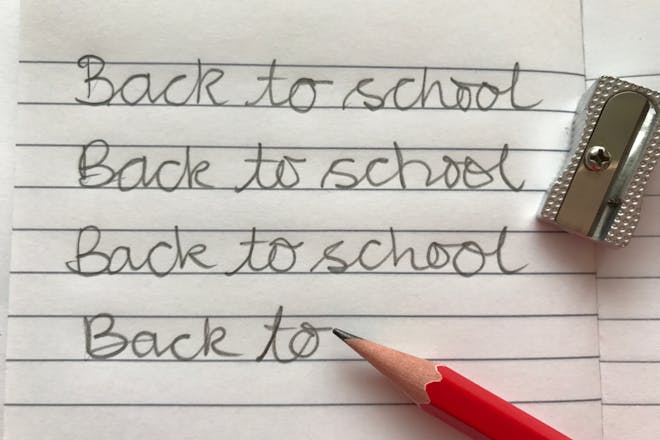 Back to school
Back to school
Back to school
Back to